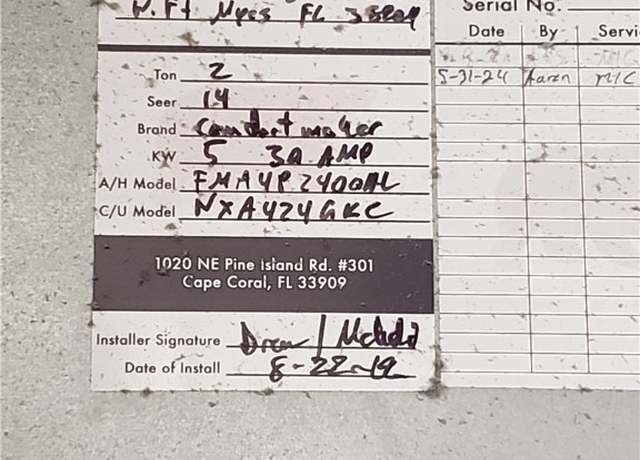 N. Ft Myes FL 33
Ton 2
Seer 14
Brand Comfort maker
KW 5 30 AMP
A/H Model FMA4P2400AL
C/U Model NXA424GKC
1020 NE Pine Island Rd. #301
Cape Coral, FL 33909
Installer Signature Drew /
Date of Install 8-22-19
Serial No.
Date By Servi
5-31-24 Aaron M/C